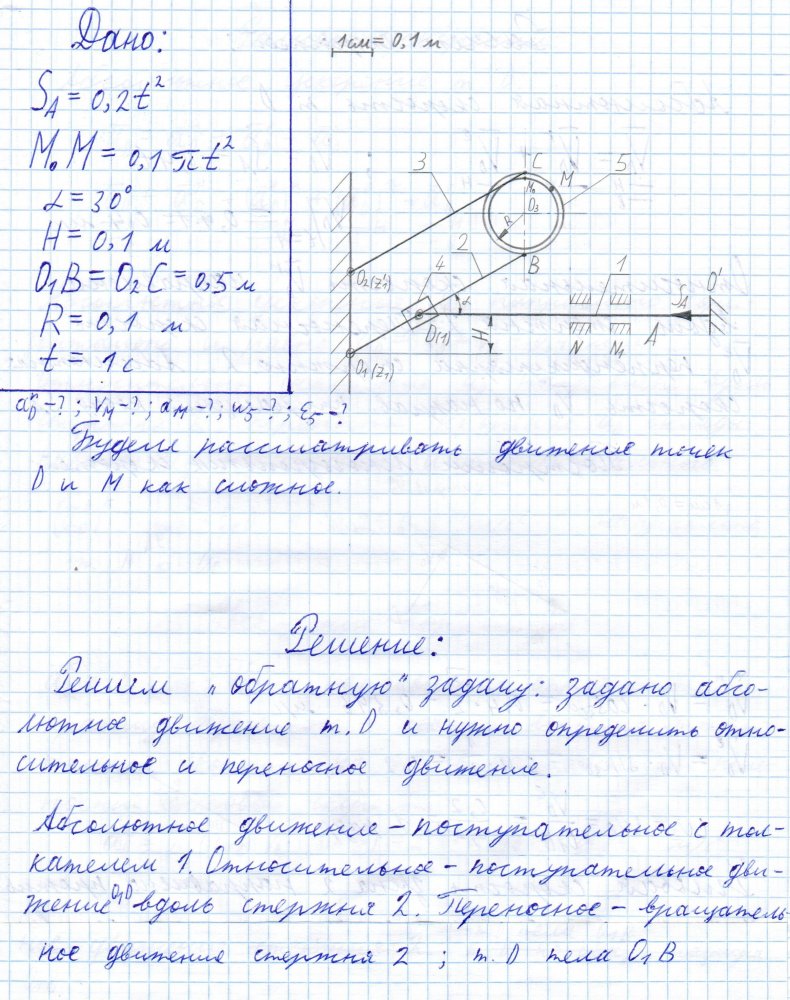 Дано:
1см = 0,1 м
S_A = 0,2t²
M₀M = 0,1πt²
α = 30°
H = 0,1 м
O₁B = O₂C = 0,5 м
R = 0,1 м
t = 1с
3
C
M
5
M₀
O₃
R
2
B
4
1
O₂(z'₁)
α
O'
D(1)
H
S_A
N
N₁
A
O₁(z₁)
a_D^n-?; V_M-?; a_M-?; ω₅-?; ε₅-?
Будем рассматривать движение точек
D и M как сложное.
Решение:
Решим „обратную" задачу: задано абсо-
лютное движение т. D и нужно определить отно-
сительное и переносное движение.
Абсолютное движение – поступательное с тол-
кателем 1. Относительное – поступательное дви-
жение O₁D вдоль стержня 2. Переносное – вращатель-
ное движение стержня 2 ; т. D тела O₁B